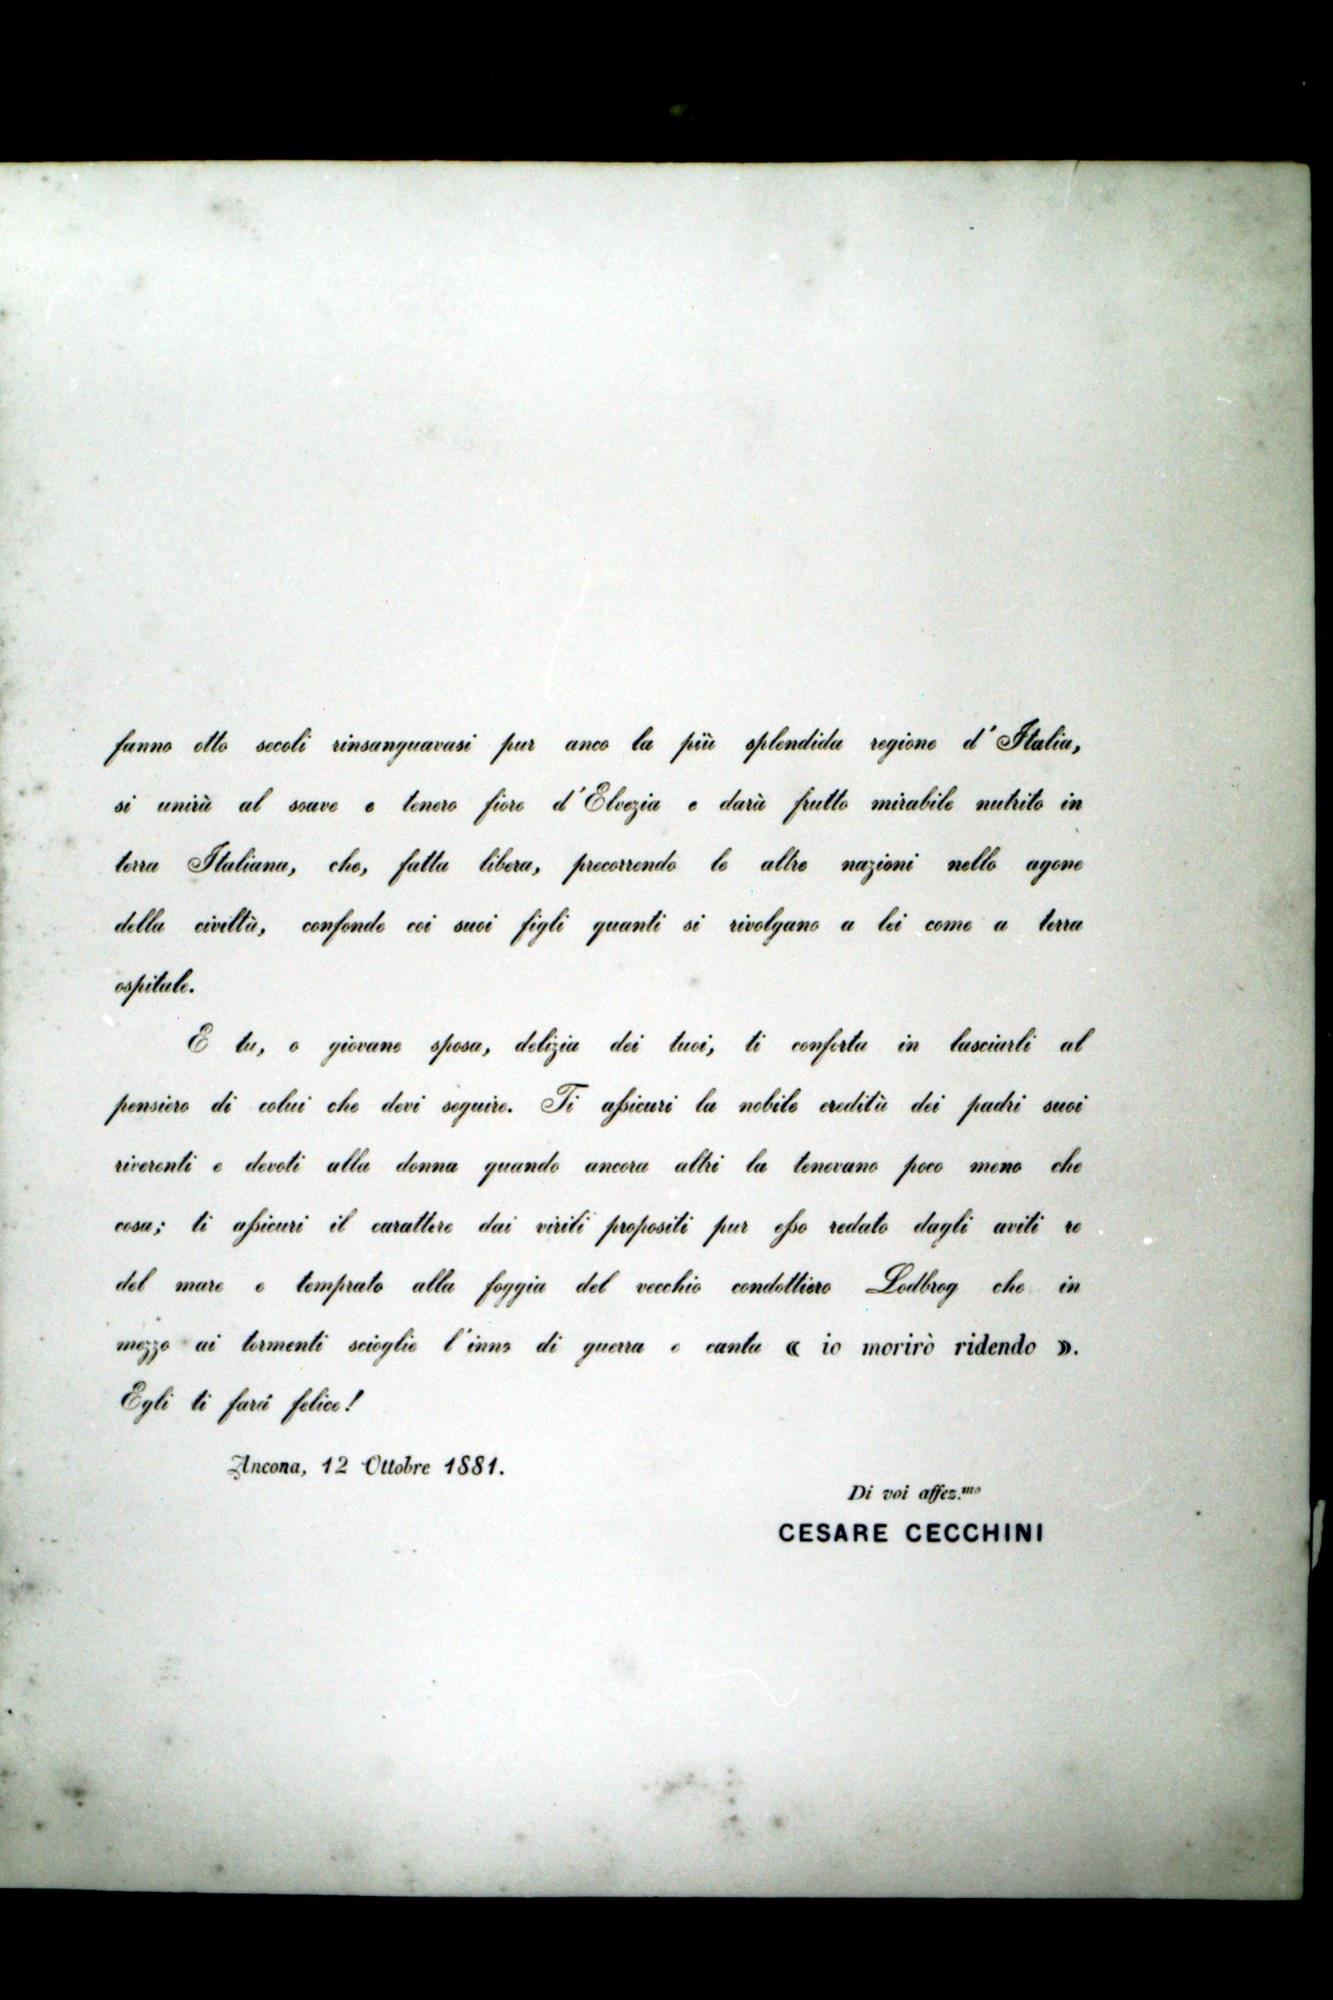 fanno otto secoli rinsanguavasi pur anco la più splendida regione d'Italia,
si unirà al soave e tenero fiore d'Elvezia e darà frutto mirabile nutrito in
terra Italiana, che, fatta libera, precorrendo le altre nazioni nello agone
della civiltà, confonde coi suoi figli quanti si rivolgano a lei come a terra
ospitale.
E tu, o giovane sposa, delizia dei tuoi, ti conforta in lasciarli al
pensiero di colui che devi seguire. Ti aſsicuri la nobile eredità dei padri suoi
riverenti e devoti alla donna quando ancora altri la tenevano poco meno che
cosa; ti aſsicuri il carattere dai virili propositi pur eſso redato dagli aviti re
del mare e temprato alla foggia del vecchio condottiero Lodbrog che in
mezzo ai tormenti scioglie l'inno di guerra e canta « io morirò ridendo ».
Egli ti farà felice!
Ancona, 12 Ottobre 1881.
Di voi affez.mo
CESARE CECCHINI